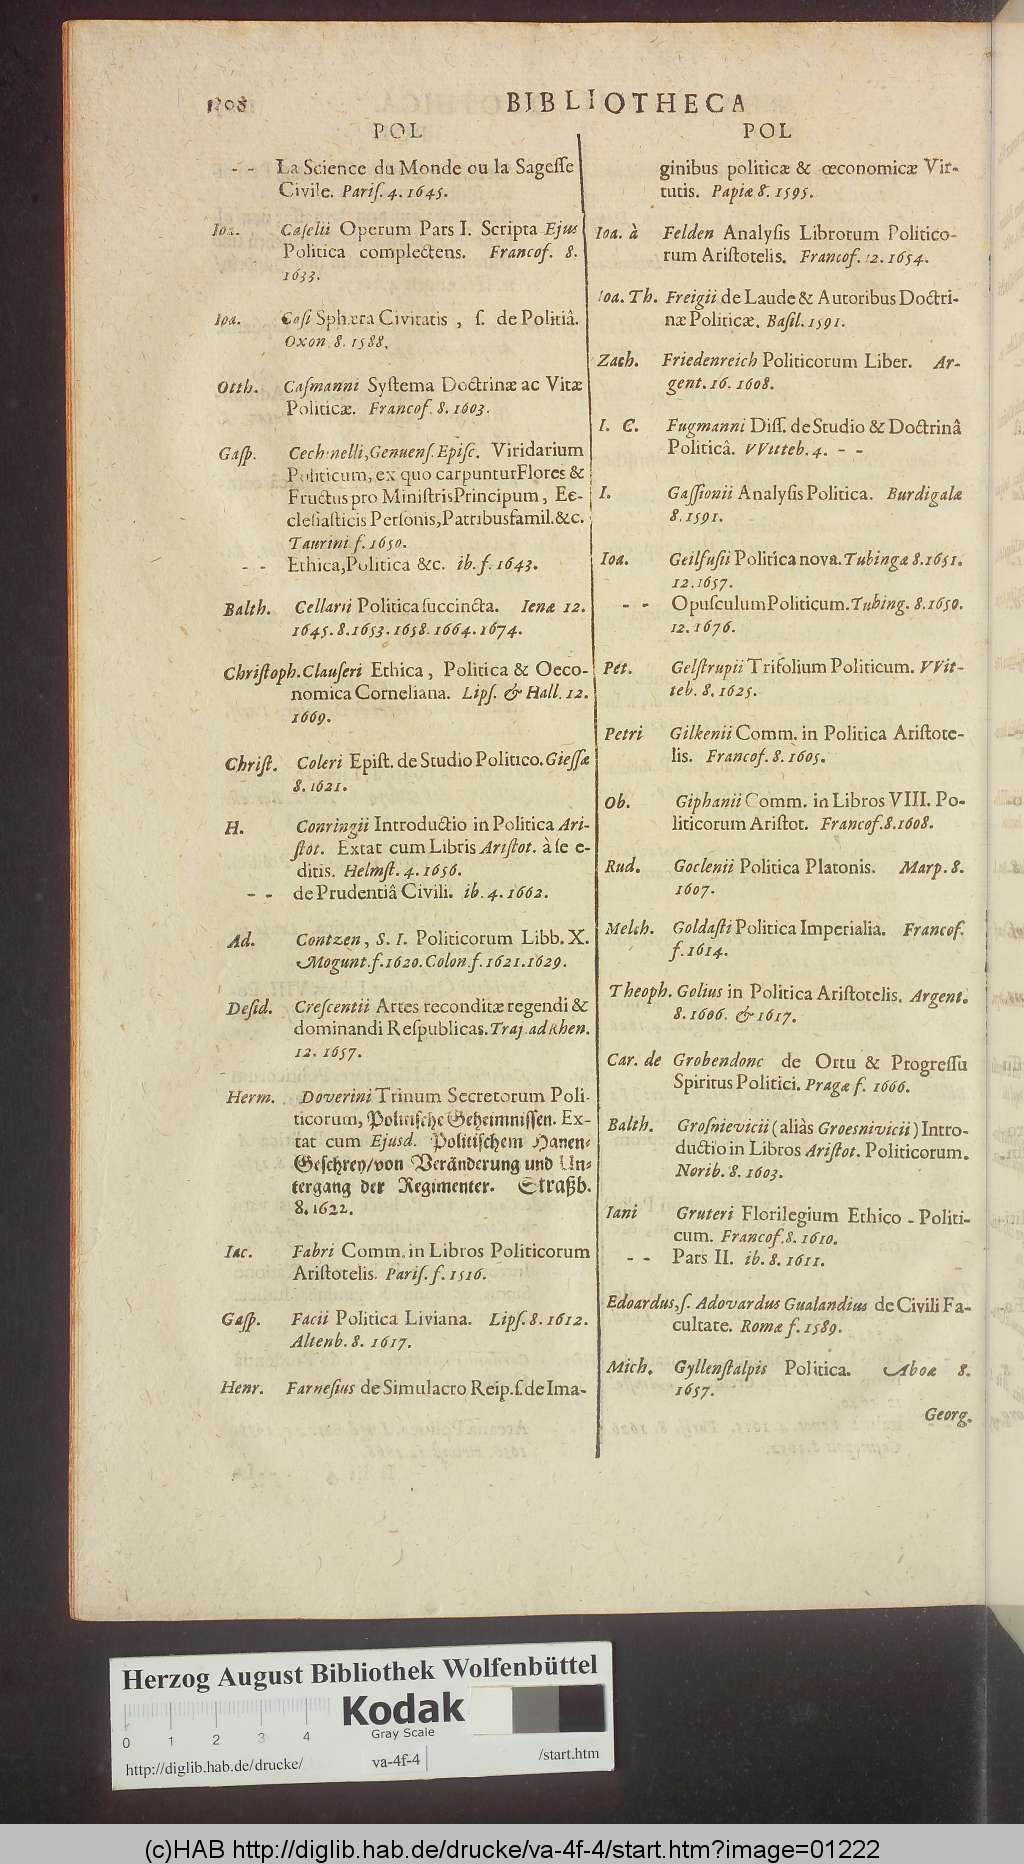 1208
BIBLIOTHECA
POL
- - La Science du Monde ou la Sagesſe
Civile. Pariſ. 4. 1645.
Ioa. Caſelii Operum Pars I. Scripta Ejus
Politica complectens. Francof. 8.
1633.
Ioa. Caſi Sphæra Civitatis, ſ. de Politiâ.
Oxon. 8. 1588.
Otth. Caſmanni Syſtema Doctrinæ ac Vitæ
Politicæ. Francof. 8. 1603.
Gaſp. Cechinelli, Genuenſ. Epiſc. Viridarium
Politicum, ex quo carpuntur Flores &
Fructus pro Miniſtris Principum, Ec-
cleſiaſticis Perſonis, Patribusfamil. &c.
Taurini f. 1650.
- - Ethica, Politica &c. ib. f. 1643.
Balth. Cellarii Politica ſuccincta. Ienæ 12.
1645. 8. 1653. 1658. 1664. 1674.
Chriſtoph. Clauſeri Ethica, Politica & Oeco-
nomica Corneliana. Lipſ. & Hall. 12.
1669.
Chriſt. Coleri Epiſt. de Studio Politico. Gieſſæ
8. 1621.
H. Conringii Introductio in Politica Ari-
ſtot. Extat cum Libris Ariſtot. à ſe e-
ditis. Helmſt. 4. 1656.
- - de Prudentiâ Civili. ib. 4. 1662.
Ad. Contzen, S. I. Politicorum Libb. X.
Mogunt. f. 1620. Colon. f. 1621. 1629.
Deſid. Creſcentii Artes reconditæ regendi &
dominandi Reſpublicas. Traj. ad Rhen.
12. 1657.
Herm. Doverini Trinum Secretorum Poli-
ticorum, Politiſche Geheimniſſen. Ex-
tat cum Ejusd. Politiſchem Hanen-
Geſchrey/von Veränderung und Un-
tergang der Regimenter. Straßb.
8. 1622.
Iac. Fabri Comm. in Libros Politicorum
Ariſtotelis. Pariſ. f. 1516.
Gaſp. Facii Politica Liviana. Lipſ. 8. 1612.
Altenb. 8. 1617.
Henr. Farneſius de Simulacro Reip. ſ. de Ima-
POL
ginibus politicæ & œconomicæ Vir-
tutis. Papiæ 8. 1595.
Ioa. à Felden Analyſis Librorum Politico-
rum Ariſtotelis. Francof. 12. 1654.
Ioa. Th. Freigii de Laude & Autoribus Doctri-
næ Politicæ. Baſil. 1591.
Zach. Friedenreich Politicorum Liber. Ar-
gent. 16. 1608.
I. C. Fugmanni Diſſ. de Studio & Doctrinâ
Politicâ. VVitteb. 4. - -
I. Gaſſionii Analyſis Politica. Burdigalæ
8. 1591.
Ioa. Geilfuſii Politica nova. Tubingæ 8. 1651.
12. 1657.
- - Opuſculum Politicum. Tubing. 8. 1650.
12. 1676.
Pet. Gelſtrupii Trifolium Politicum. VVit-
teb. 8. 1625.
Petri Gilkenii Comm. in Politica Ariſtote-
lis. Francof. 8. 1605.
Ob. Giphanii Comm. in Libros VIII. Po-
liticorum Ariſtot. Francof. 8. 1608.
Rud. Goclenii Politica Platonis. Marp. 8.
1607.
Melch. Goldaſti Politica Imperialia. Francof.
f. 1614.
Theoph. Golius in Politica Ariſtotelis. Argent.
8. 1606. & 1617.
Car. de Grobendonc de Ortu & Progreſſu
Spiritus Politici. Pragæ f. 1666.
Balth. Groſnievicii (aliàs Groesnivicii) Intro-
ductio in Libros Ariſtot. Politicorum.
Norib. 8. 1603.
Iani Gruteri Florilegium Ethico - Politi-
cum. Francof. 8. 1610.
- - Pars II. ib. 8. 1611.
Edoardus, ſ. Adovardus Gualandius de Civili Fa-
cultate. Romæ f. 1589.
Mich. Gyllenſtalpis Politica. Aboæ 8.
1657.
Georg.
Herzog August Bibliothek Wolfenbüttel
Kodak
Gray Scale
0 1 2 3 4
http://diglib.hab.de/drucke/ va-4f-4 /start.htm
(c)HAB http://diglib.hab.de/drucke/va-4f-4/start.htm?image=01222